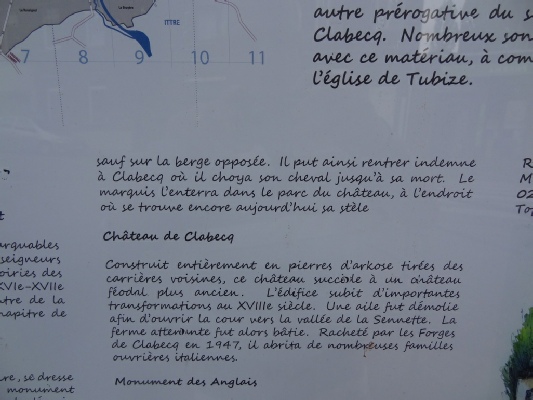 ITTRE
7 8 9 10 11
autre prérogative du s
Clabecq. Nombreux son
avec ce matériau, à com
l'église de Tubize.
sauf sur la berge opposée. Il put ainsi rentrer indemne
à Clabecq où il choya son cheval jusqu'à sa mort. Le
marquis l'enterra dans le parc du château, à l'endroit
où se trouve encore aujourd'hui sa stèle
Château de Clabecq
Construit entièrement en pierres d'arkose tirées des
carrières voisines, ce château succède à un château
féodal plus ancien. L'édifice subit d'importantes
transformations au XVIIIe siècle. Une aile fut démolie
afin d'ouvrir la cour vers la vallée de la Sennette. La
ferme attenante fut alors bâtie. Racheté par les Forges
de Clabecq en 1947, il abrita de nombreuses familles
ouvrières italiennes.
Monument des Anglais
t
arquables
seigneurs
oiries des
XVIe-XVIIe
ntre de la
hapitre de
re, se dresse
monument
R
M
02
To